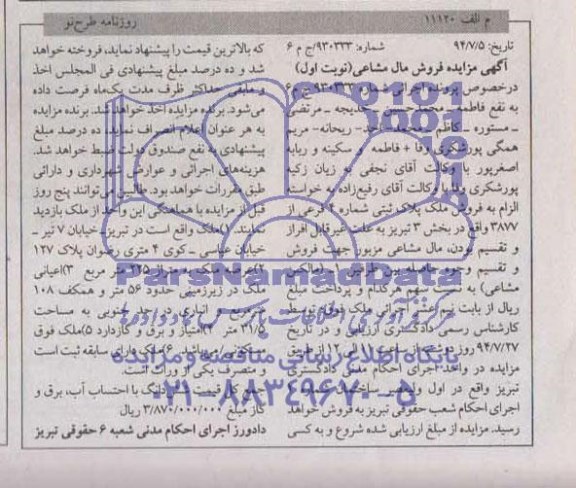 م الف ۱۱۱۲۰
روزنامه طرح‌نو
تاریخ: ۹۴/۷/۵ شماره: ۹۳۰۳۳۳/ج م ۶
آگهی مزایده فروش مال مشاعی(نوبت اول)
درخصوص پرونده اجرائی شماره ۹۳۰۳۳۳ ج م ۶
به نفع فاطمه ـ محمدحسین ـ خدیجه ـ مرتضی
ـ مستوره ـ کاظم ـ محمد ـ ریحانه ـ مریم
همگی پورشکری وفا + فاطمه و سکینه و ربابه
اصغرپور با وکالت آقای نجفی به زیان زکیه
پورشکری وفا با وکالت آقای رفیع‌زاده به خواسته
الزام به فروش ملک پلاک ثبتی شماره فرعی از
۳۸۷۷ واقع در بخش ۳ تبریز به علت غیرقابل افراز
و تقسیم بودن، مال مشاعی مزبور جهت فروش
و تقسیم وجوه حاصله بین طرفین (مالکین
مشاعی) به نسبت سهم هرکدام و پرداخت مبلغ
ریال از بابت نیم عشر اجرائی ملک فوق توسط
کارشناس رسمی دادگستری ارزیابی و در تاریخ
۹۴/۷/۲۷ روز دوشنبه از ساعت ۱۱ الی ۱۲ از طریق
مزایده در واحد اجرای احکام مدنی دادگستری
تبریز واقع در اول
اجرای احکام شعب حقوقی تبریز به فروش خواهد
رسید. مزایده از مبلغ ارزیابی شده شروع و به کسی
که بالاترین قیمت را پیشنهاد نماید، فروخته خواهد
شد و ده درصد مبلغ پیشنهادی فی المجلس اخذ
و مابقی حداکثر ظرف مدت یک‌ماه فرصت داده
می‌شود. برنده مزایده اخذ خواهد شد. برنده مزایده
به هر عنوان اعلام انصراف نماید، ده درصد مبلغ
پیشنهادی به نفع صندوق دولت ضبط خواهد شد.
هزینه‌های اجرائی و عوارض شهرداری و دارائی
طبق مقررات خواهد بود. طالبین می‌توانند پنج روز
قبل از مزایده با هماهنگی این واحد از ملک بازدید
نمایند. ۱)ملک واقع است در تبریز ـ خیابان ۷ تیر ـ
خیابان عباسی ـ کوی ۴ متری رضوان پلاک ۱۲۷
۲)عرصه ملک به متراژ ۲۲۵ متر مربع ۳)اعیانی
ملک در زیرزمینی حدود ۵۶ متر و همکف ۱۰۸
مترمربع و انباری در حد جنوبی به مساحت
۳۱/۵ متر ۴)امتیاز و برق و گاز دارد ۵)ملک فوق
مسکونی می‌باشد ۶)ملک دارای سابقه ثبت است
و متصرف یکی از وراث است.
قیمت با احتساب آب، برق و
گاز مبلغ ۳/۸۷۰/۰۰۰/۰۰۰ ریال
دادورز اجرای احکام مدنی شعبه ۶ حقوقی تبریز
ParsNamadData
پایگاه اطلاع رسانی مناقصه و مزایده
۰۲۱-۸۸۳۴۹۶۷۰-۵